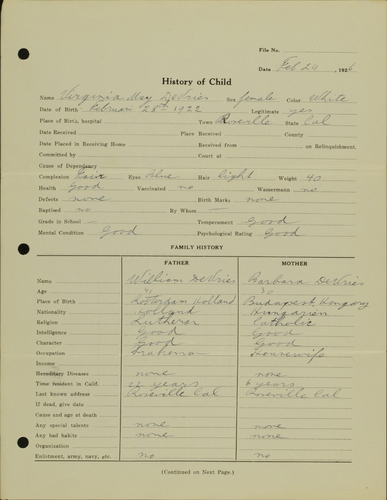 File No.
Date Feb 24, 1926
History of Child
Name Virginia May DeVries Sex female Color White
Date of Birth Februari 28th 1922 Legitimate yes
Place of Birth, hospital Town Roseville State Cal
Date Received Place Received County
Date Placed in Receiving Home Received from on Relinquishment.
Committed by Court at
Cause of Dependency
Complexion Fair Eyes blue Hair light Weight 40
Health Good Vaccinated no Wassermann no
Defects none Birth Marks none
Baptised no By Whom —
Grade in School — Temperament Good
Mental Condition Good Psychological Rating Good
FAMILY HISTORY
FATHER MOTHER
Name William DeVries Barbara DeVries
Age 41 30
Place of Birth Holland Budapest, Hungary
Nationality Holland Hungarian
Religion Lutheran Catholic
Intelligence Good Good
Character Good Good
Occupation housewife
Income
Hereditary Diseases none none
Time resident in Calif. years 6 years
Last known address Roseville Cal Roseville Cal
If dead, give date
Cause and age at death
Any special talents none none
Any bad habits none none
Organization
Enlistment, army, navy, etc. no no
(Continued on Next Page.)